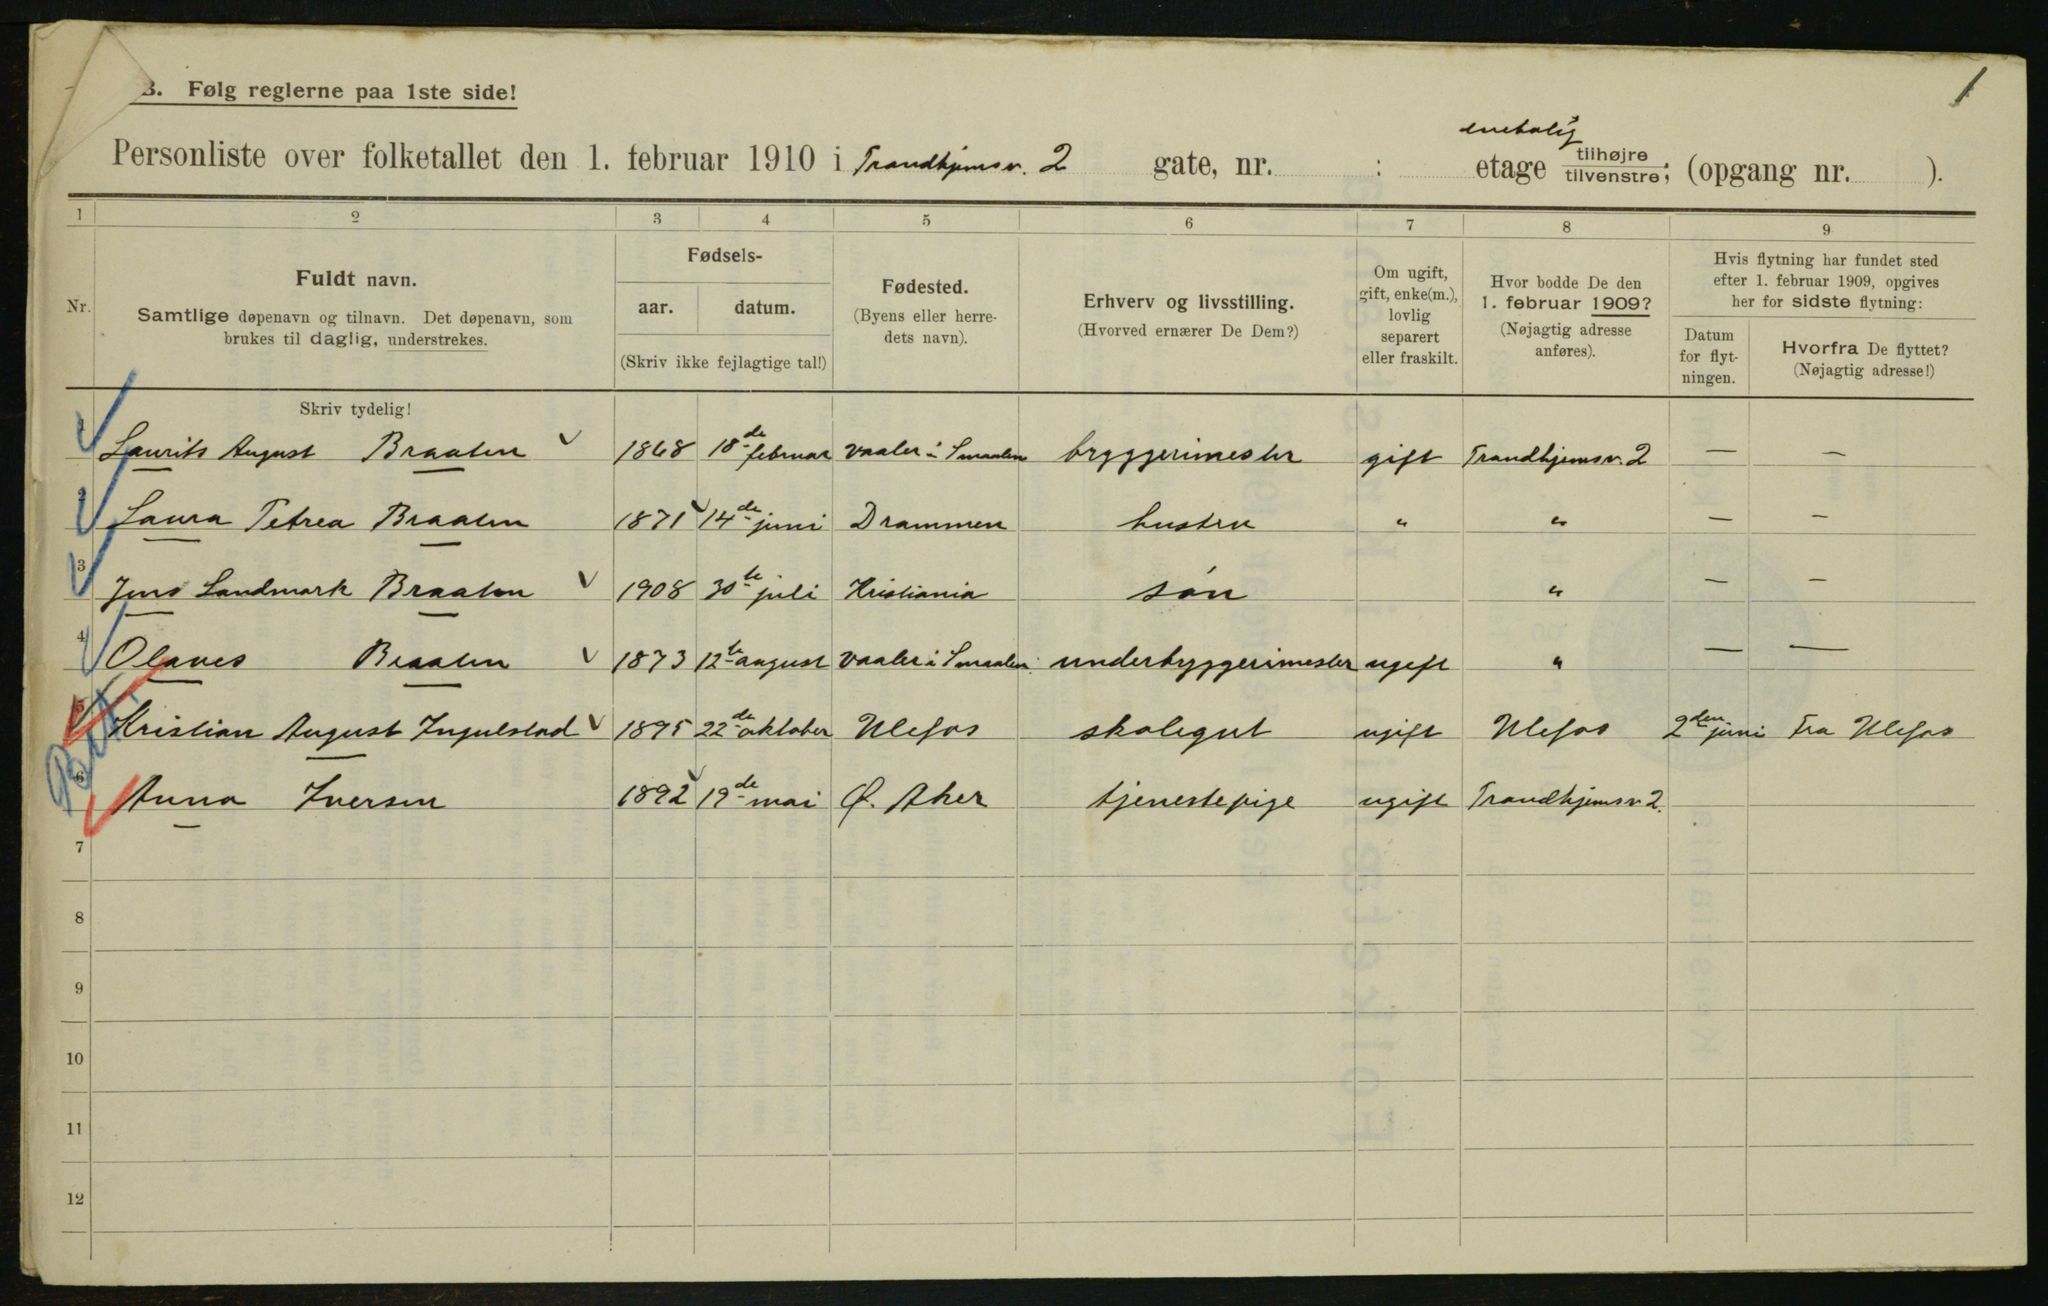 B. Følg reglerne paa 1ste side!
1
enebolig
Personliste over folketallet den 1. februar 1910 i Trondhjemsv. 2 gate, nr. : etage tilhøjre tilvenstre; (opgang nr. ).
1 2 3 4 5 6 7 8 9
Nr.
Fuldt navn.
Samtlige døpenavn og tilnavn. Det døpenavn, som
brukes til daglig, understrekes.
Fødsels-
aar. datum.
(Skriv ikke fejlagtige tal!)
Fødested.
(Byens eller herre-
dets navn).
Erhverv og livsstilling.
(Hvorved ernærer De Dem?)
Om ugift,
gift, enke(m.),
lovlig
separert
eller fraskilt.
Hvor bodde De den
1. februar 1909?
(Nøjagtig adresse
anføres).
Hvis flytning har fundet sted
efter 1. februar 1909, opgives
her for sidste flytning:
Datum
for flyt-
ningen.
Hvorfra De flyttet?
(Nøjagtig adresse!)
Skriv tydelig!
1 Laurits August Braaten 1868 18de februar Vaaler i Smaalen bryggerimester gift Trondhjemsv. 2 — —
2 Laura Petrea Braaten 1871 14de juni Drammen hustru " " — —
3 Jens Landmark Braaten 1908 30te juli Kristiania søn " — —
4 Olaves Braaten 1873 12te august Vaaler i Smaalen underbryggerimester ugift " — —
5 Kristian August Ingulstad 1895 22de oktober Ulefos skolegut ugift Ulefos 2den juni Fra Ulefos
6 Anna Iversen 1892 19de mai Ø. Aker tjenestepige ugift Trondhjemsv 2.
7
8
9
10
11
12